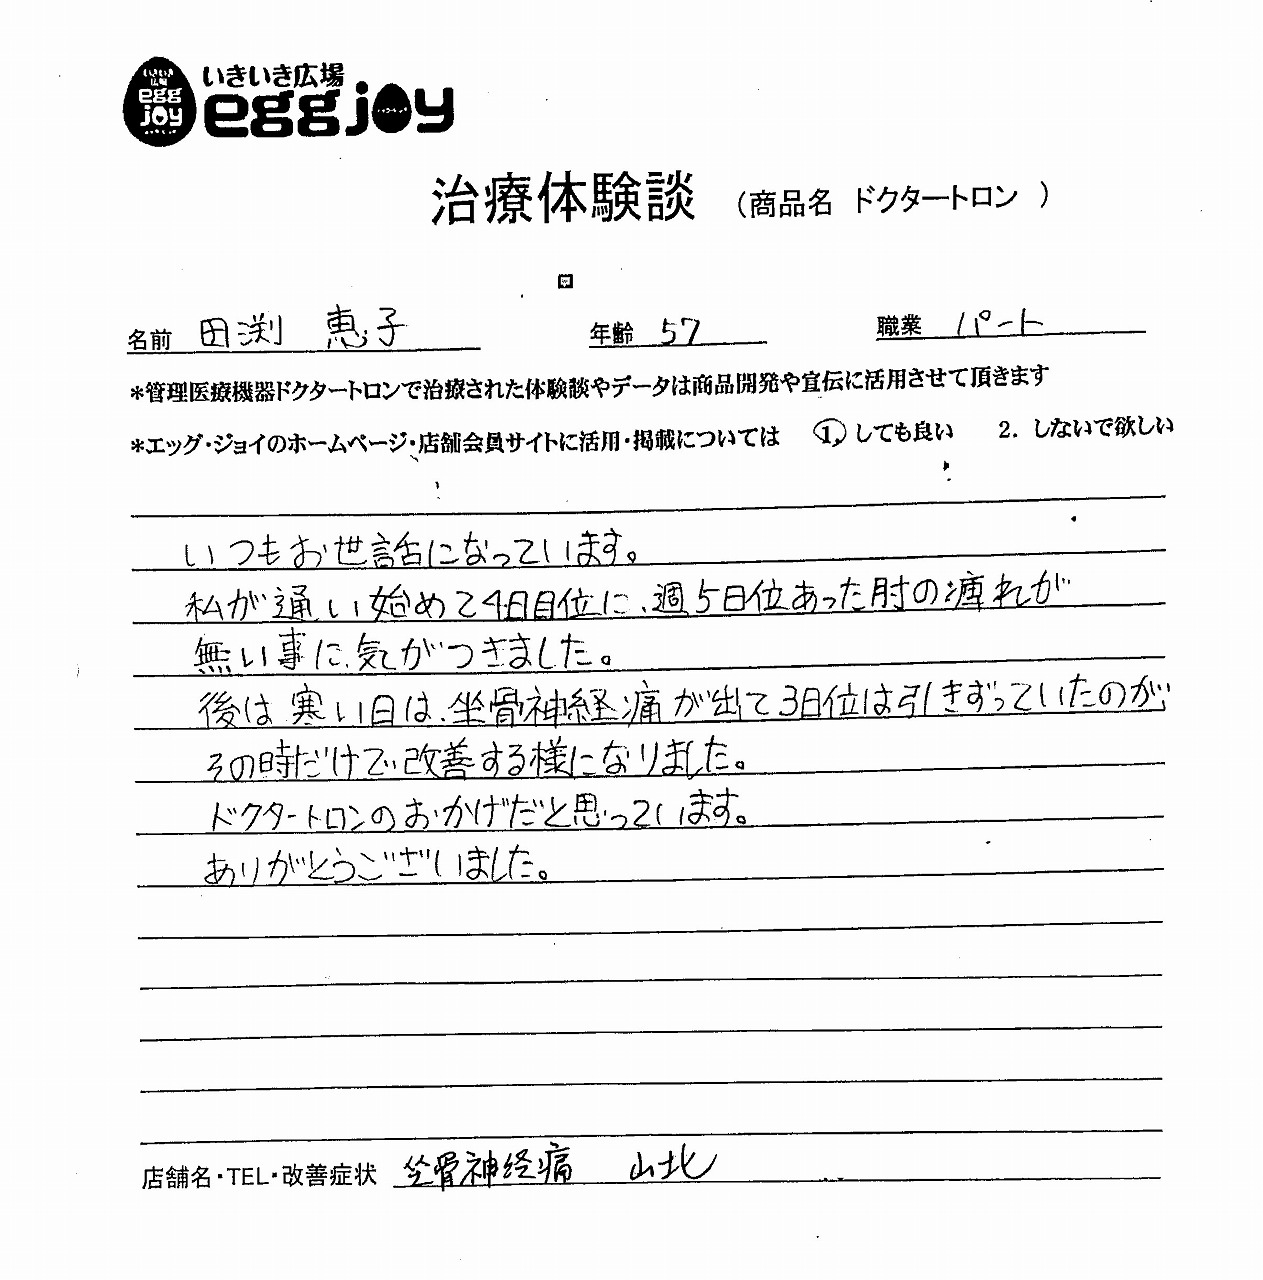 いきいき広場
egg joy
いきいき広場
eggjoy
治療体験談 （商品名 ドクタートロン ）
名前 田渕 恵子 年齢 57 職業 パート
*管理医療機器ドクタートロンで治療された体験談やデータは商品開発や宣伝に活用させて頂きます
*エッグ・ジョイのホームページ・店舗会員サイトに活用・掲載については 1. しても良い 2. しないで欲しい
いつもお世話になっています。
私が通い始めて4日目位に、週5日位あった肘の痺れが
無い事に、気がつきました。
後は寒い日は、坐骨神経痛が出て3日位は引きずっていたのが、
その時だけで改善する様になりました。
ドクタートロンのおかげだと思っています。
ありがとうございました。
店舗名・TEL・改善症状 坐骨神経痛 山北